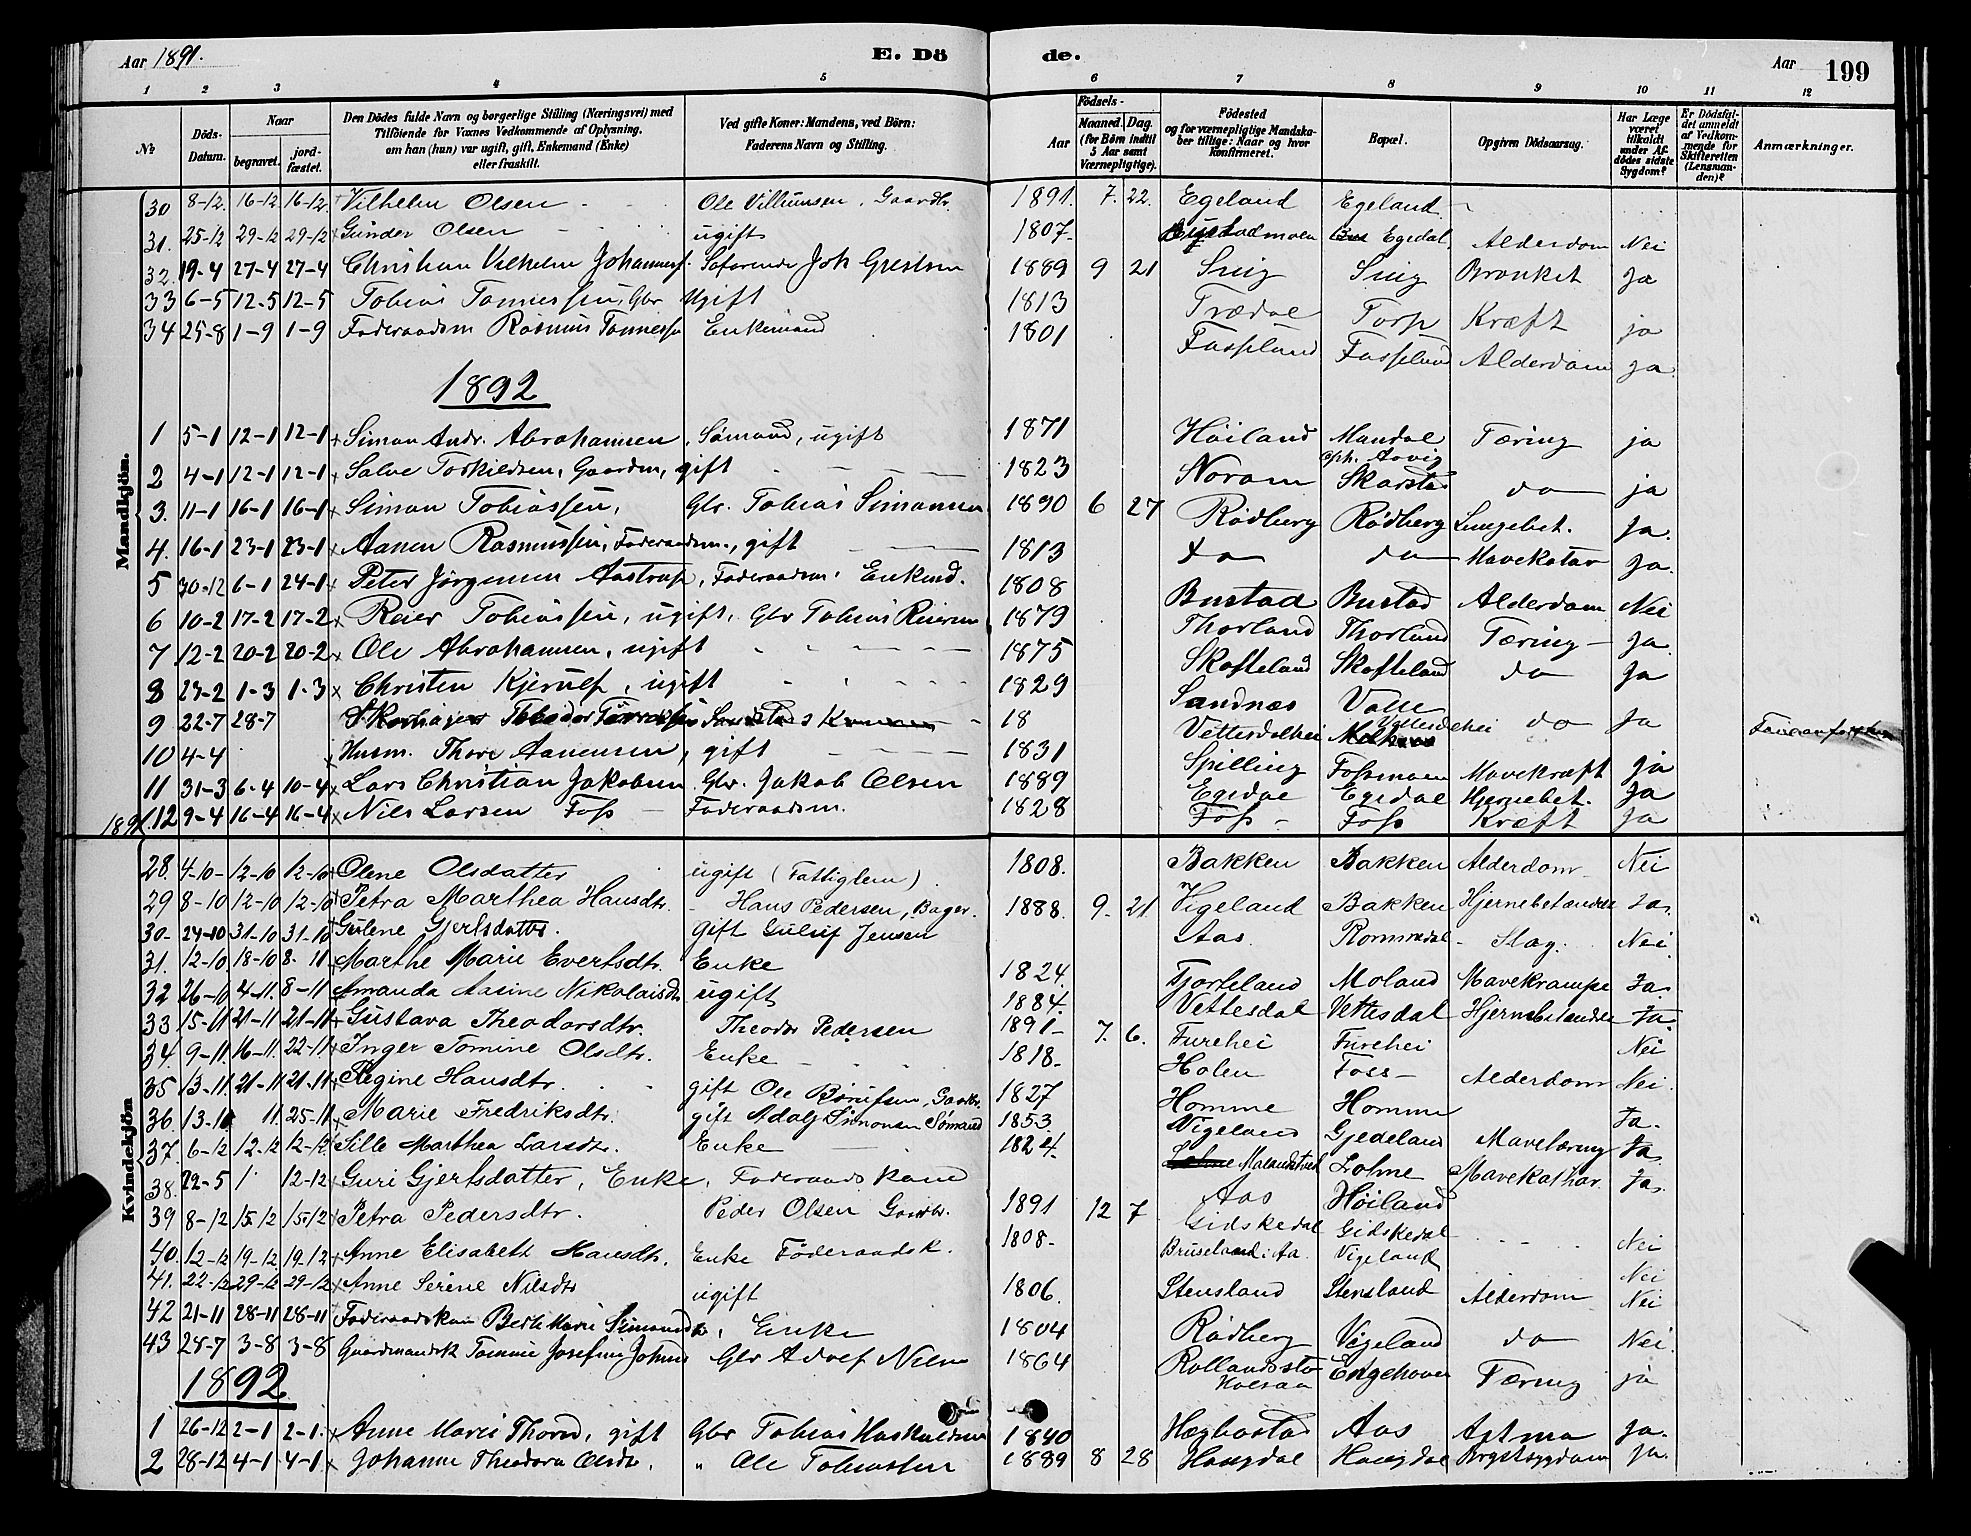 Aar 1891. E. Dö de. Aar 199
1 2 3 4 5 6 7 8 9 10 11 12
№ Döds-Datum. Naar begravet. jord-fæstet. Den Dödes fulde Navn og borgerlige Stilling (Næringsvei) med Tilföiende for Voxnes Vedkommende af Oplysning, om han (hun) var ugift, gift, Enkemand (Enke) eller fraskilt. Ved gifte Koner: Mandens, ved Börn: Faderens Navn og Stilling. Aar Födsels- Maaned. Dag. (for Börn indtil 5 Aar samt Værnepligtige). Födested og for værnepligtige Mandskaber tillige: Naar og hvor konfirmeret. Bopæl. Opgiven Dödsaarsag. Har Læge været tilkaldt under Afdödes sidste Sygdom? Er Dödsfaldet anmeldt af Vedkommende for Skifteretten (Lensmanden)? Anmærkninger.
Mandkjön.
30 8-12. 16-12 16-12. Vilhelm Olsen Ole Villumsen, Gaardbr. 1891. 7. 22. Egeland Egeland
31. 25-12 29-12 29-12 Gunder Olsen ugift 1807 Egedal Alderdom Nei
32. 19-4 27-4 27-4 Christian Vilhelm Johannes. Søfarende Joh 1889 9 21 Snig Snig Bronket Ja
33 6-5 12-5 12-5 Tobias Tønnessen, Gbr Ugift 1813 Trædal Torp Kræft ja
34 25-8 1-9 1-9 Føderaadsm Rasmus Tønness Enkemand 1801 Fasseland Fasseland Alderdom Ja
1892
1 5-1 12-1 12-1 Simon Andr. Abrahamsen, Sømand, ugift 1871 Høiland Mandal Tæring ja
2 4-1 12-1 12-1 Salve Torkildsen, Gaardm, gift 1823 Norum Skarstad do ja
3. 11-1 16-1 16-1 Simon Tobiassen, Gbr. Tobias Simonsen 1890 6 27 Rødberg Rødberg Lungebet. Ja.
4. 16-1 23-1 23-1 Aanen Rasmussen, Føderaadsm., gift 1813 do do Mavekatar Ja.
5 30-12 6-1 24-1 Peter Jørgensen Aastrup, Føderaadsm. Enkmd. 1808 Bustad Bustad Alderdom Nei
6 10-2 17-2 17-2 Reier Tobiassen, ugift, Gbr Tobias Reiersen 1879 Thorland Thorland Tæring Ja
7 12-2 20-2 20-2 Ole Abrahamsen, ugift 1875 Skofteland Skofteland do Ja
8 23-2 1-3 1-3 Christen Kjerulf, ugift 1829 Sandnæs Valle
9 22-7 28-7 18 do Ja
10 4-4 Husm. Thore Aanensen, gift 1831 Vettesdalhei Vettesdalhei
11 31-3 6-4 10-4 Lars Christian Jakobsen Gbr. Jakob Olsen 1889 Spilling Fossmoen Mavekræft Ja
1892. 12 9-4 16-4 16-4 Nils Larsen Foss Føderaadsm. 1828 Egedal Egedal Hjernebet. Ja
Foss Foss Kræft Ja
Kvindekjön
28. 4-10 12-10 12-10 Olene Olsdatter ugift (Fattiglem) 1808. Bakken Bakken Alderdom Nei
29 8-10 12-10 12-10 Petra Marthea Hansdtr. Hans Pedersen, Bager. 1888. 9. 21 Vigeland Bakken Hjernebetændelse Ja.
30. 24-10 31-10 31-10 Gulene Gjertsdattr. gift Guluf Jensen Aas Rommedal Slag. Nei
31. 12-10 18-10 8-11 Marthe Marie Evertsdtr. Enke 1824. Fjorteland Moland Mavekrampe Ja.
32 26-10 4-11. 8-11 Amanda Aasine Nikolaisdtr ugift 1884. Vettesdal Vettesdal Hjernebetændelse Ja.
33 15-11 21-11 21-11 Gustava Theodorsdtr. Theodor Pedersen 1891 7. 6. Furehei Furehei Nei
34. 9-11. 16-11. 22-11 Inger Tomine Olsdtr. Enke 1818 Holen Foss Alderdom Nei.
35 13-11. 21-11 21-11 Regine Hansdtr. gift Ole Børufsen, Gaardbr. 1827 Homme Homme
36 13-11 11. 25-11 Marie Fredriksdtr. gift Adolf Simonsen Sømand 1853 Vigeland Gjedeland Mavetæring Ja.
37. 6-12 12.12 12-12. Sille Marthea Larsdtr. Enke 1824. Lohne Mavekathar. Ja.
38. 22-5 1 12-12 Guri Gjertsdatter, Enke, Føderaadskone Aas Høiland Ja.
39 8-12 15.12 15.12 Petra Pedersdtr. Peder Olsen Gaardbr. 1891 12 7 Gidskedal Gidskedal
40. 12-12 19-12 19.12 Anne Elisabeth Hansdtr. Enke Føderaadsk. 1808- Bruseland i Aa. Vigeland Nei
41. 22-12 29-12 29-12 Anne Serine Nilsdtr ugift 1806. Stensland Stensland Alderdom Nei
42 21-11 28-11 28-11 Føderaadskone Berte Marie Simonsdtr, Enke 1804 Rødberg Vigeland do Nei.
43 24-7 3-8 3-8 Gaardmandsk Tomine Josefine Johns Gbr Adolf Nilsen 1864 Engehaven Tæring ja
1892
1 26-12 2-1 2-1. Anne Marie Thord, gift Gbr Tobias Haskuldsen 1840 Hægbostad Aas Astma Ja.
2 28-12 4-1 4-1 Johanne Theodora Olsdtr. " Ole Tobiassen 1889 8 28 Haugdal Haugdal Brystsygdom Ja.